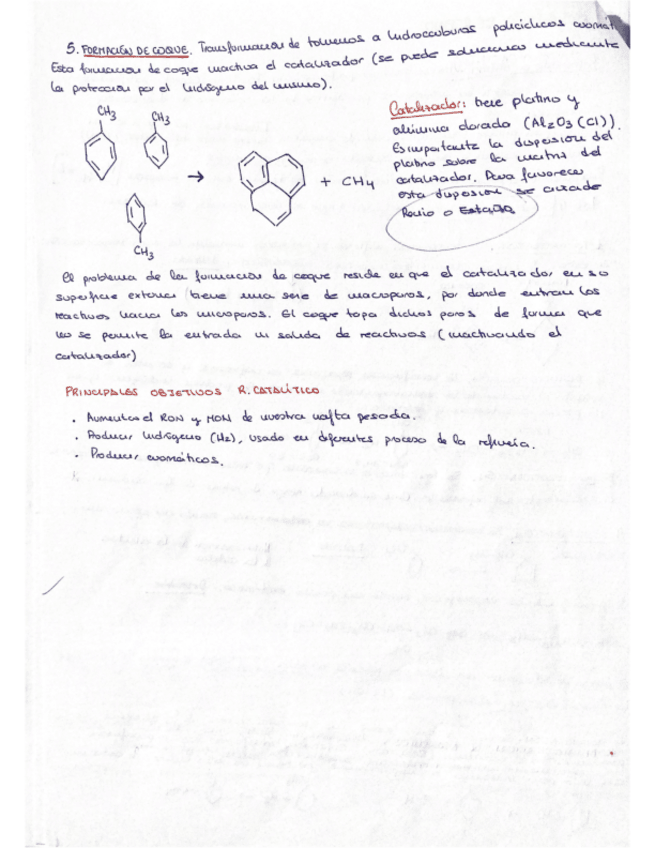 5. FORMACIÓN DE COQUE. Transformación de toluenos a hidrocarburos policíclicos aromát
Esta formación de coque inactiva el catalizador (se puede solucionar mediante
la protección por el hidrógeno del mismo).
CH3
CH3
CH3
→
+ CH4
Catalizador: tiene platino y
alúmina clorado (Al2O3(Cl)).
Es importante la dispersión del
platino sobre la matriz del
catalizador. Para favorecer
esta dispersión se añade
Renio o Estaño
El problema de la formación de coque reside en que el catalizador en su
superficie externa tiene una serie de macroporos, por donde entran los
reactivos hacia los microporos. El coque tapa dichos poros de forma que
no se permite la entrada ni salida de reactivos (inactivando el
catalizador)
PRINCIPALES OBJETIVOS R. CATALÍTICO
· Aumentar el RON y MON de nuestra nafta pesada.
· Producir hidrógeno (H2), usado en diferentes proceso de la refinería.
· Producir aromáticos.